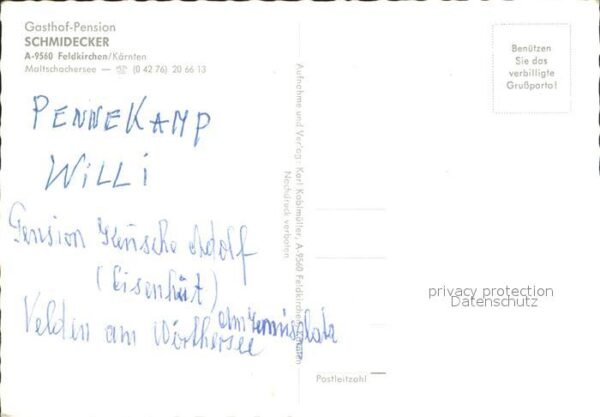 Gasthof-Pension
SCHMIDECKER
A-9560 Feldkirchen/Kärnten
Maltschachersee — ☏ (0 42 76) 20 66 13
PENNEKAMP
WILLI
Pension Adolf
(Eisenhut)
am Tennisplatz
Velden am Wörthersee
Aufnahme und Verlag: Karl Koblmüller, A-9560 Feldkirchen/Kärnten
Nachdruck verboten
Benützen
Sie das
verbilligte
Grußporto!
privacy protection
Datenschutz
Postleitzahl